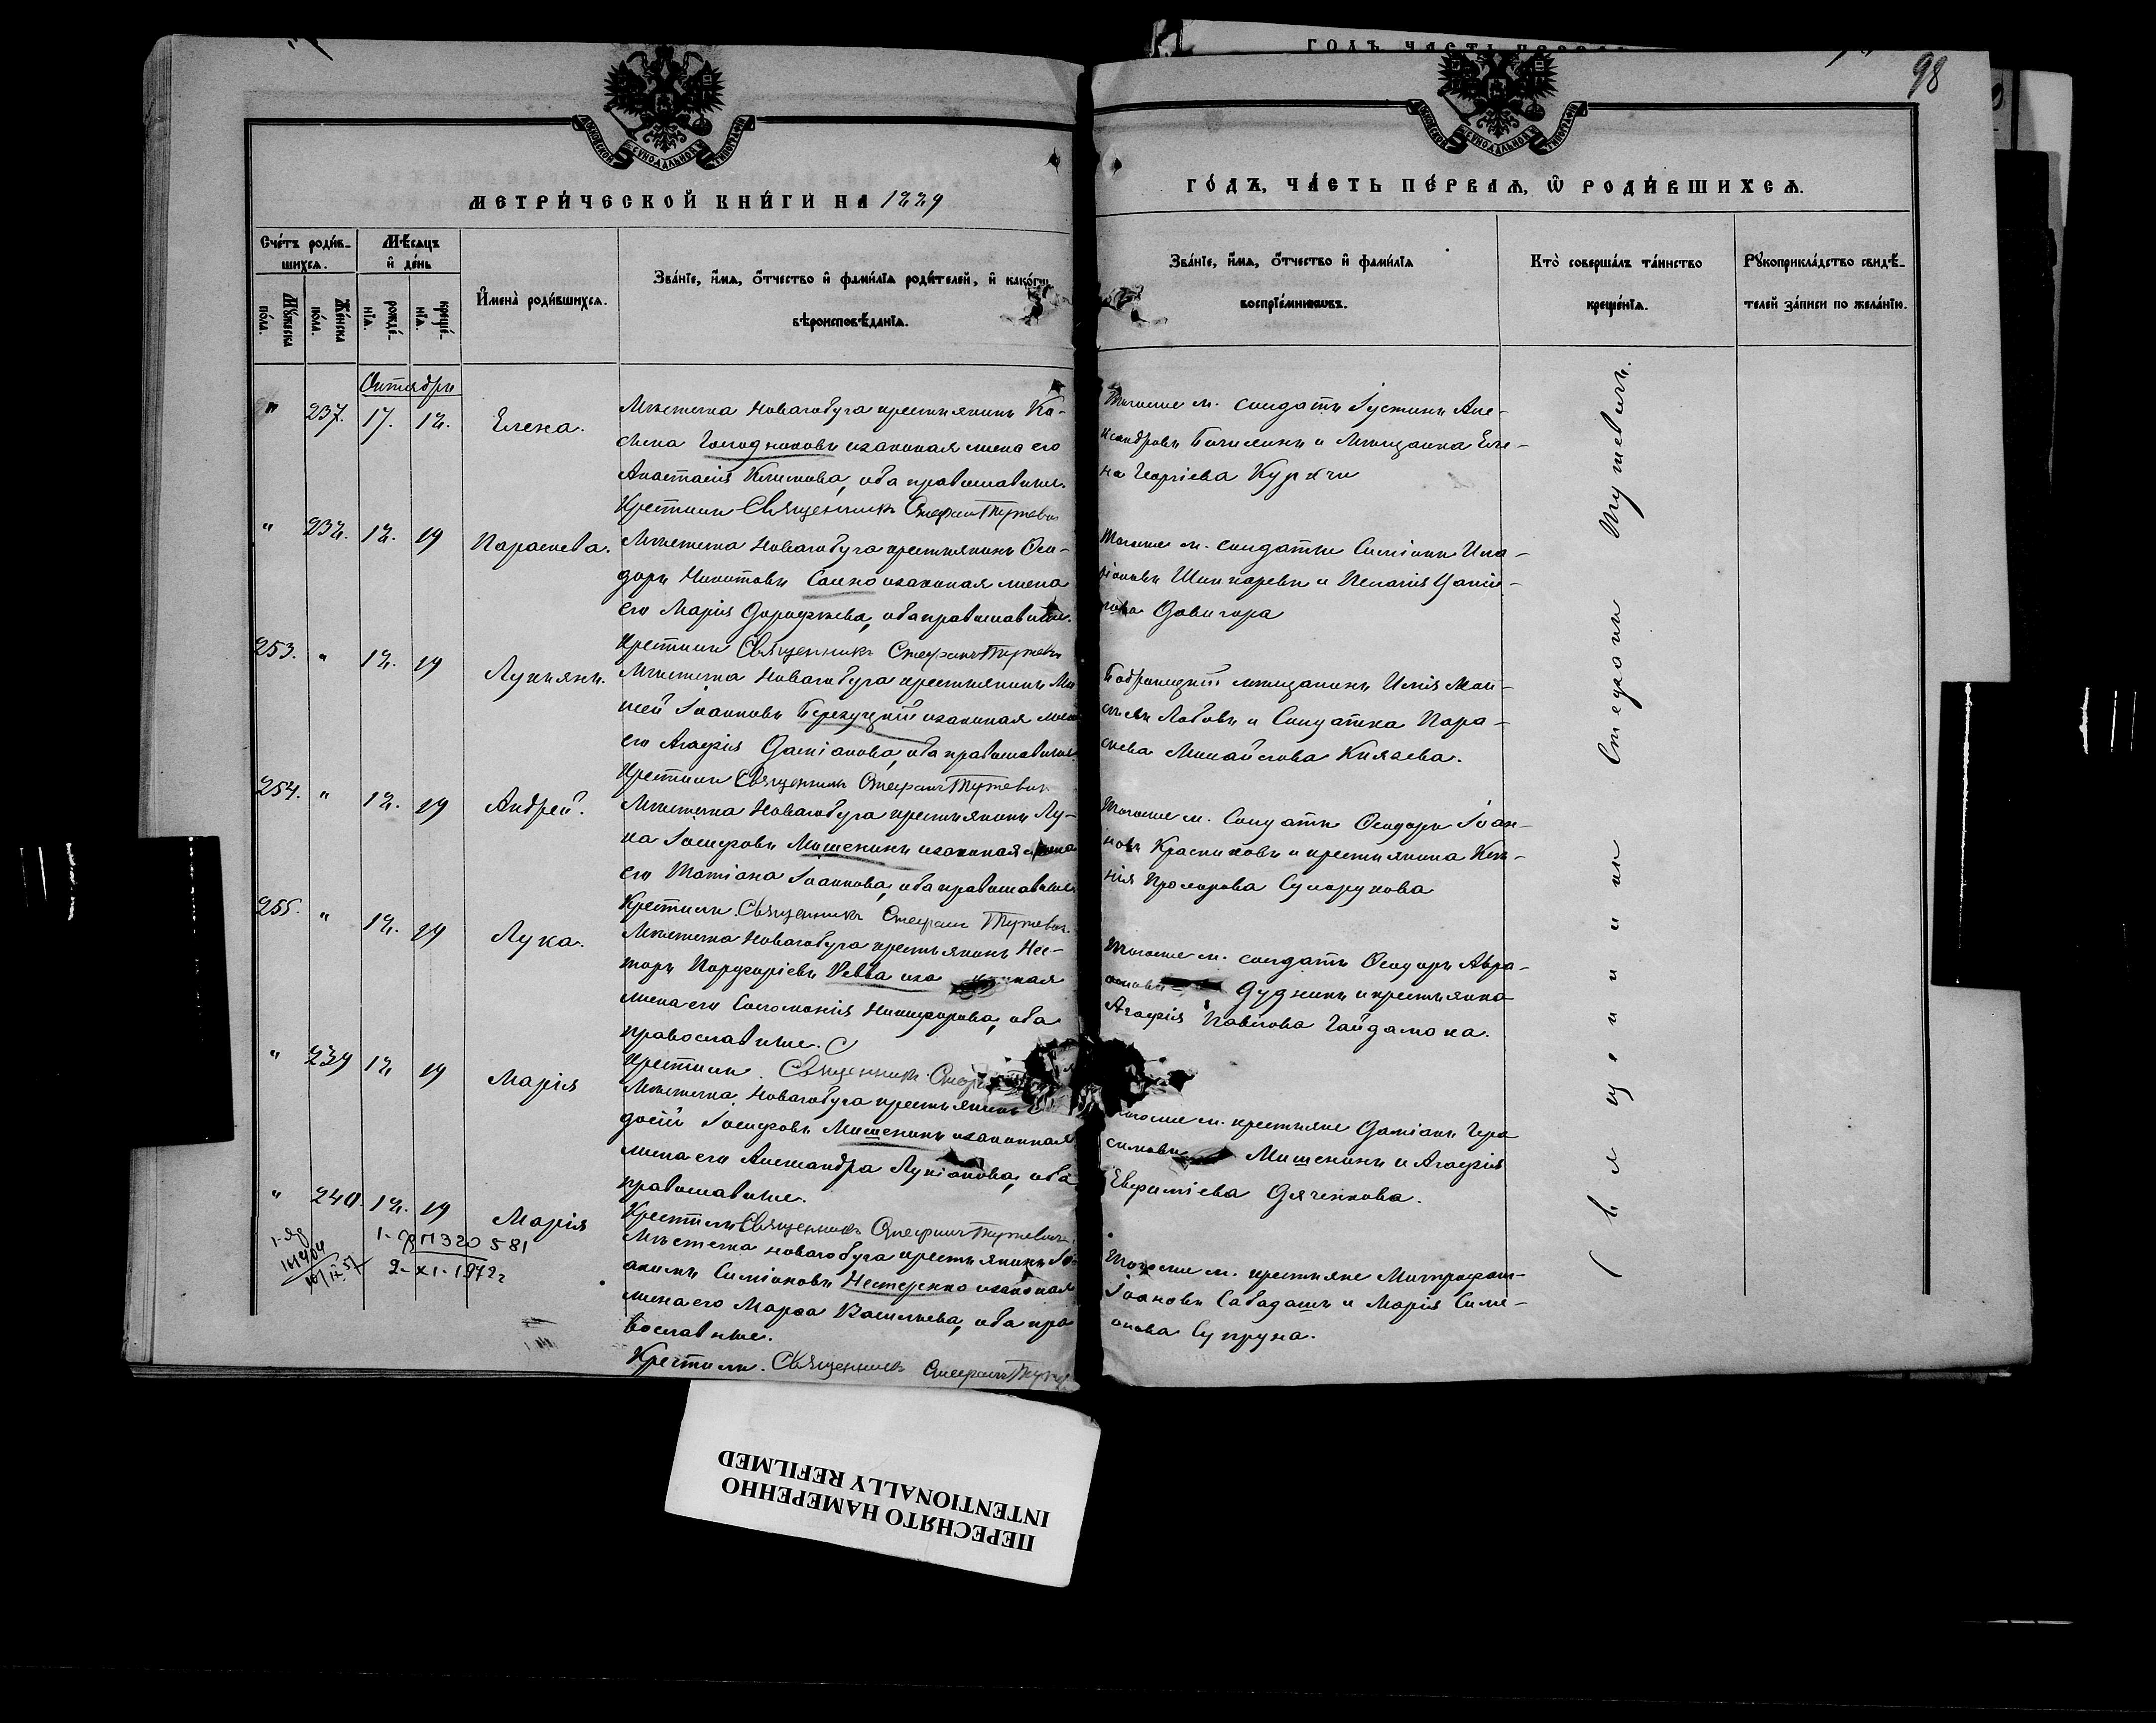 98
МЕТРИ́ЧЕСКОЙ КНИ́ГИ НА 1889
ГО́ДЪ, ЧА́СТЬ ПЕ́РВАѦ, Ѽ РОДИ́ВШИХСѦ.
Сче́тъ роди́в-
шихсѧ.
Мꙋ́жеска по́ла.
Же́нска по́ла.
Мѣ́сѧцъ и҆ де́нь
рожде́-нїѧ.
креще́-нїѧ.
И҆мена̀ роди́вшихсѧ.
Зва́нїе, и҆́мѧ, о҆́тчество и҆ фами́лїѧ роди́телей, и҆ како́гѡ
вѣроисповѣ́данїѧ.
Зва́нїе, и҆́мѧ, о҆́тчество и҆ фами́лїѧ
воспрїе́мникѡвъ.
Кто̀ соверша́лъ та́инство
креще́нїѧ.
Рꙋкоприкла́дство свидѣ́-
телей за́писи по жела́нїю.
Октября
" 237. 17. 18. Елена.
Мѣстечка Новагобуга крестьянинъ Ко-
сьма Голодниковъ и законная жена его
Анастасія Климова, оба православные.
Крестилъ Священникъ Стефанъ
Тогоже м. солдатъ Іустинъ Але-
ксандровъ и мѣщанка Еле-
на Георгіева
" 238. 18. 19 Параскева.
Мѣстечка Новагобуга крестьянинъ Ѳео-
доръ Никитовъ Сайко и законная жена
его Марія Дороѳеева, оба православные.
Крестилъ Священникъ Стефанъ
Тогоже м. солдатъ Симеонъ Ила-
ріоновъ Шинкаревъ и Пелагія
Довигора
253. " 18. 19 Лукьянъ.
Мѣстечка Новагобуга крестьянинъ
Іоанновъ Березуцкій и законная жена
его Агафія Даміанова, оба православные.
Крестилъ Священникъ Стефанъ
Бобринецкій мѣщанинъ Илія Мои-
сеевъ и Солдатка Пара-
скева Михайлова Князева.
254. " 18. 19 Андрей.
Мѣстечка Новагобуга крестьянинъ Лу-
ка Іосифовъ Мишенинъ и законная жена
его Татіана Іоаннова, оба православные
Крестилъ Священникъ Стефанъ
Тогоже м. Солдатъ Ѳеодоръ Іоан-
новъ Красниковъ и крестьянка Ксе-
нія Прохорова Сухорукова
255. " 18. 19 Лука.
Мѣстечка Новагобуга крестьянинъ Нес-
торъ ПорфиріевъРевва и законная
жена его Соломонія Никифорова, оба
православные.
Крестилъ Священникъ
Тогоже м. солдатъ Ѳеодоръ Авра-
амовъ Дудникъ и крестьянка
Агафія Павлова Гайдамака.
" 239 18 19 Марія
Мѣстечка Новагобуга крестьянинъ
Іосифовъ Мишенинъ и законная
жена его Александра Лукіанова, оба
православные.
Крестилъ Священникъ Стефанъ
Тогоже м. крестьяне Даміанъ Гера-
симовъ Мишенинъ и Агафія
Евфиміева Дяченкова.
" 240. 18. 19 Марія
Мѣстечка Новагобуга крестьянинъ Іо-
акимъ Симіоновъ Нестеренко и законная
жена его Марѳа Васильева, оба пра-
вославные.
Крестилъ. Священникъ Стефанъ
Тогоже м. крестьяне Митрофанъ
Іоанновъ Сабадашъ и Марія Симе-
онова Супруна.
320581
2-XI-1972г
Священникъ Стефанъ
ПЕРЕСНЯТО НАМЕРЕННО
INTENTIONALLY REFILMED